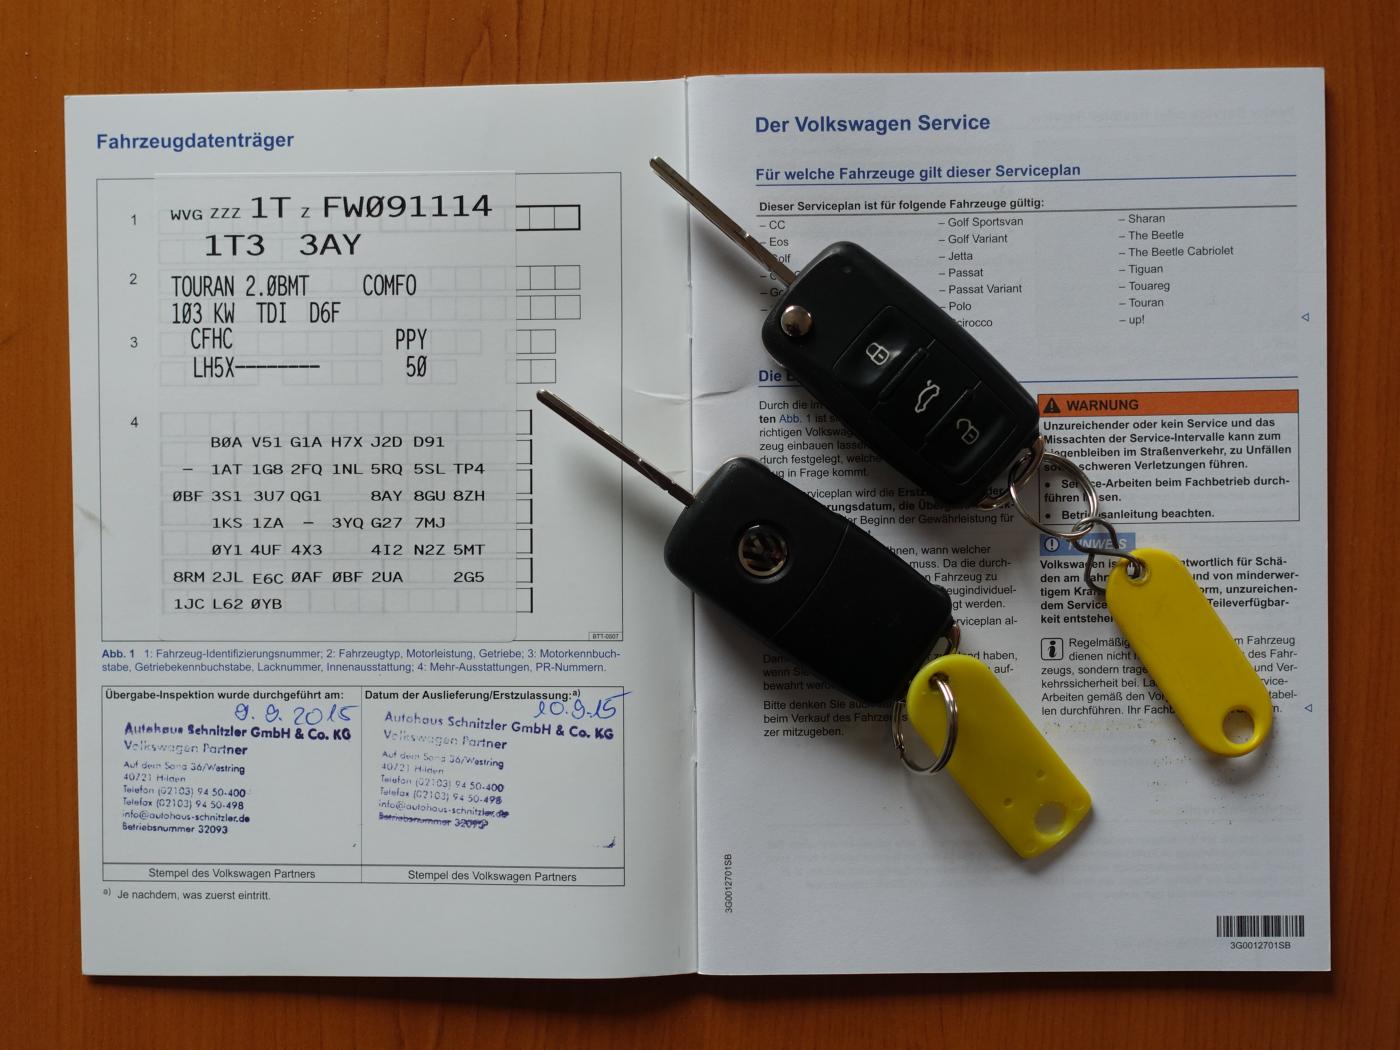 Fahrzeugdatenträger
1 WVG ZZZ 1T Z FWØ91114
1T3 3AY
2 TOURAN 2.ØBMT COMFO
1Ø3 KW TDI D6F
3 CFHC PPY
LH5X-------- 5Ø
4
BØA V51 G1A H7X J2D D91
– 1AT 1G8 2FQ 1NL 5RQ 5SL TP4
ØBF 3S1 3U7 QG1 8AY 8GU 8ZH
1KS 1ZA – 3YQ G27 7MJ
ØY1 4UF 4X3 4I2 N2Z 5MT
8RM 2JL E6C ØAF ØBF 2UA 2G5
1JC L62 ØYB
BTT-0507
Abb. 1 1: Fahrzeug-Identifizierungsnummer; 2: Fahrzeugtyp, Motorleistung, Getriebe; 3: Motorkennbuch-
stabe, Getriebekennbuchstabe, Lacknummer, Innenausstattung; 4: Mehr-Ausstattungen, PR-Nummern.
Übergabe-Inspektion wurde durchgeführt am:
9.9.2015
Autohaus Schnitzler GmbH & Co. KG
Volkswagen Partner
Auf dem Sand 36/Westring
40721 Hilden
Telefon (02103) 94 50-400
Telefax (02103) 94 50-498
info@autohaus-schnitzler.de
Betriebsnummer 32093
Stempel des Volkswagen Partners
Datum der Auslieferung/Erstzulassung:a)
10.9.15
Autohaus Schnitzler GmbH & Co. KG
Volkswagen Partner
Auf dem Sand 36/Westring
40721 Hilden
Telefon (02103) 94 50-400
Telefax (02103) 94 50-498
info@autohaus-schnitzler.de
Betriebsnummer 32093
Stempel des Volkswagen Partners
a) Je nachdem, was zuerst eintritt.
Der Volkswagen Service
Für welche Fahrzeuge gilt dieser Serviceplan
Dieser Serviceplan ist für folgende Fahrzeuge gültig:
– CC
– Eos
– Golf Sportsvan
– Golf Variant
– Jetta
– Passat
– Passat Variant
– Polo
– Sharan
– The Beetle
– The Beetle Cabriolet
– Tiguan
– Touareg
– Touran
– up!
Die
Durch die im
ten Abb. 1 ist
richtigen Volkswagen
zeug einbauen lassen
durch festgelegt, welche
in Frage kommt.
wird die
die
der Beginn der Gewährleistung für
wann welcher
muss. Da die durch-
Fahrzeug zu
werden.
al-
haben,
wenn
bewahrt
Bitte denken Sie
beim Verkauf des
zer mitzugeben.
WARNUNG
Unzureichender oder kein Service und das
Missachten der Service-Intervalle kann zum
Liegenbleiben im Straßenverkehr, zu Unfällen
schweren Verletzungen führen.
● Service-Arbeiten beim Fachbetrieb durch-
führen lassen.
● Betriebsanleitung beachten.
HINWEIS
Volkswagen für Schä-
den am und von minderwer-
tigem unzureichen-
dem Service Teileverfügbar-
keit
Regelmäßig Fahrzeug
dienen nicht des Fah-
zeugs, sondern und Ver-
kehrssicherheit bei.
Arbeiten gemäß den
len durchführen. Ihr
3G0012701SB
3G0012701SB